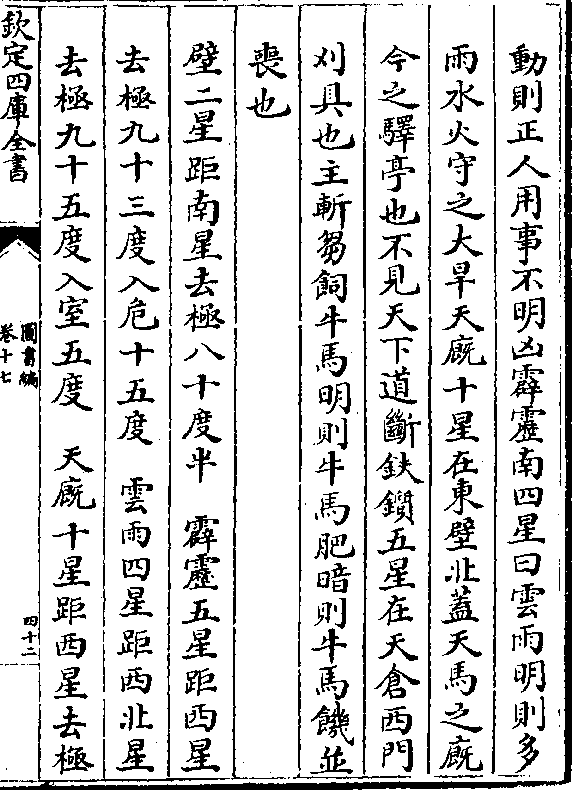 動則正人用事不明凶霹靂南四星曰雲雨明則多
雨水火守之大旱天廐十星在東壁北蓋天馬之廐
今之驛亭也不見天下道斷鈇鑕五星在天倉西門
刈具也主斬芻飼牛馬明則牛馬肥暗則牛馬饑並
喪也
壁二星距南星去極八十度半 霹靂五星距西星
去極九十三度入危十五度 雲雨四星距西北星
去極九十五度入室五度 天廐十星距西星去極
欽定四庫全書
圖書編
卷十七
四十二